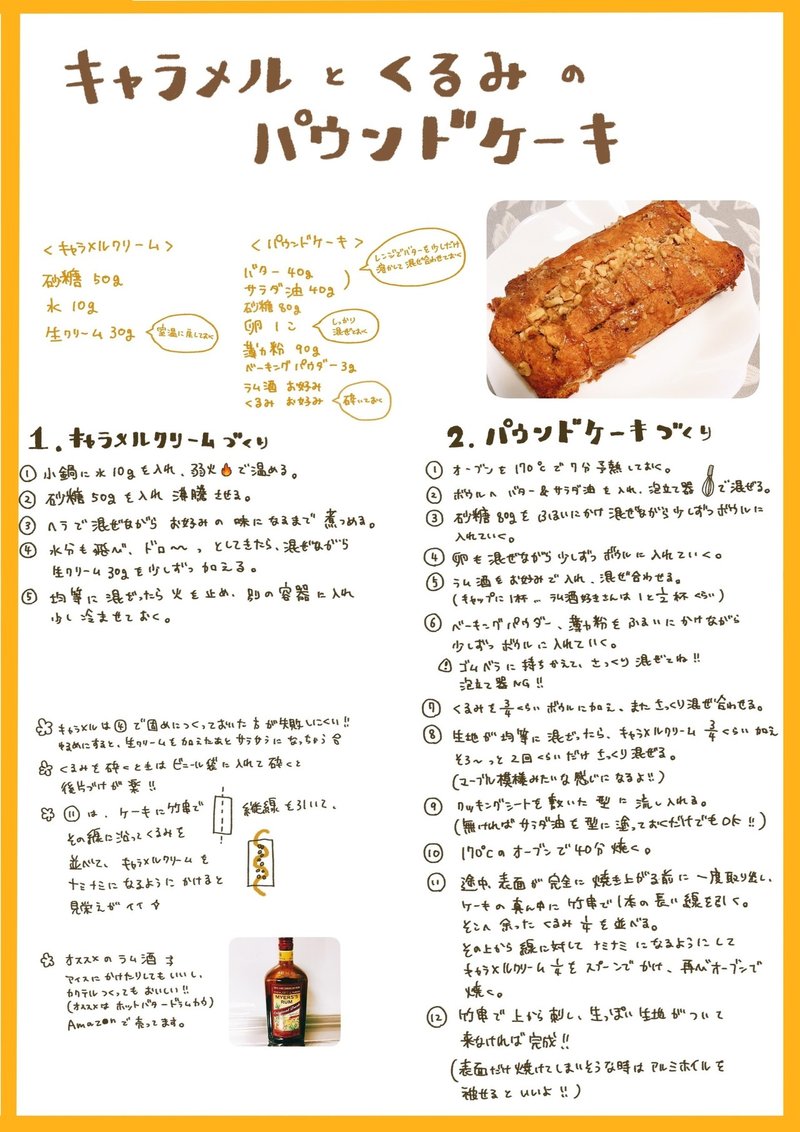 キャラメル と くるみ の
パウンドケーキ
＜キャラメルクリーム＞
砂糖 50g
水 10g
生クリーム 30g
室温に戻しておく
＜パウンドケーキ＞
バター 40g
サラダ油 40g
レンジでバターを少しだけ
溶かして混ぜ合わせておく
砂糖 80g
卵 1こ
しっかり
混ぜておく
薄力粉 90g
ベーキングパウダー 3g
ラム酒 お好み
くるみ お好み
砕いておく
1. キャラメルクリームづくり
① 小鍋に水10gを入れ、弱火🔥で温める。
② 砂糖50gを入れ沸騰させる。
③ ヘラで混ぜながら お好みの味になるまで煮つめる。
④ 水分も飛べ、ドロ〜〜っとしてきたら、混ぜながら
生クリーム30gを少しずつ加える。
⑤ 均等に混ざったら火を止め、別の容器に入れ
少し冷ませておく。
キャラメルは④で固めにつくっておいた方が失敗しにくい!!
ゆるめにすると、生クリームを加えたあとサラサラになっちゃう
くるみを砕くときはビニール袋に入れて砕くと
後片づけが楽!!
⑪は、ケーキに竹串で 縦線を引いて、
その線に沿ってくるみを
並べて、キャラメルクリームを
ナミナミになるようにかけると
見栄えがイイ
オススメのラム酒
アイスにかけたりしてもいいし、
カクテルつくってもおいしい!!
(オススメはホットバタードラムカウ)
Amazonで売ってます。
MYERS'S
RUM
2. パウンドケーキづくり
① オーブンを170℃で7分予熱しておく。
② ボウルへ バター&サラダ油を入れ、泡立て器で混ぜる。
③ 砂糖80gをふるいにかけ混ぜながら少しずつボウルに
入れていく。
④ 卵も混ぜながら少しずつボウルに入れていく。
⑤ ラム酒をお好みで入れ、混ぜ合わせる。
(キャップに1杯… ラム酒好きさんは1と1/2杯くらい)
⑥ ベーキングパウダー、薄力粉をふるいにかけながら
少しずつボウルに入れていく。
! ゴムベラに持ちかえて、さっくり混ぜてね!!
泡立て器NG!!
⑦ くるみを3/4くらいボウルに加え、またさっくり混ぜ合わせる。
⑧ 生地が均等に混ざったら、キャラメルクリーム3/4くらい加え
そろ〜っと2回くらいだけさっくり混ぜる。
(マーブル模様みたいな感じになるよ!!)
⑨ クッキングシートを敷いた型に流し入れる。
(無ければサラダ油を型に塗っておくだけでもOK!!)
⑩ 170℃のオーブンで40分焼く。
⑪ 途中、表面が完全に焼き上がる前に一度取り出し、
ケーキの真ん中に竹串で1本の長い線を引く。
そこへ余ったくるみ1/4を並べる。
その上から線に対してナミナミになるようにして
キャラメルクリーム1/4をスプーンでかけ、再びオーブンで
焼く。
⑫ 竹串で上から刺し、生っぽい生地がついて
来なければ完成!!
(表面だけ焼けてしまいそうな時はアルミホイルを
被せるといいよ!!)